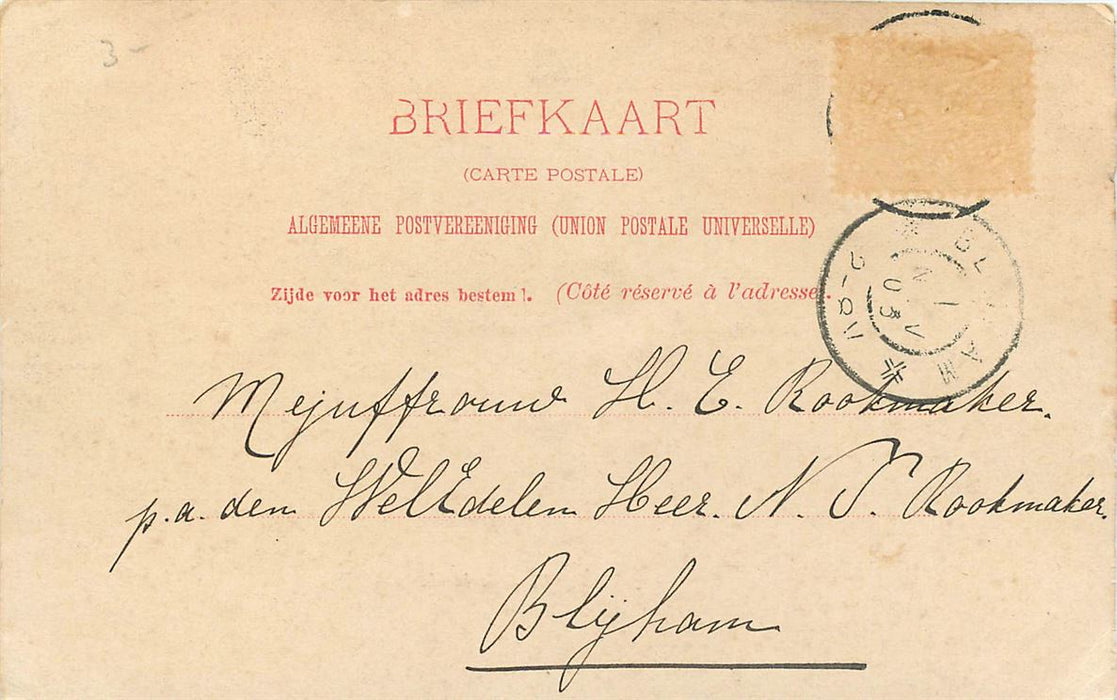 3-
BRIEFKAART
(CARTE POSTALE)
ALGEMEENE POSTVEREENIGING (UNION POSTALE UNIVERSELLE)
Zijde voor het adres bestemd. (Côté réservé à l'adresse).
Mejuffrouw H. E. Rookmaker.
p.a. den WelEdelen Heer. N. T. Rookmaker.
Blijham